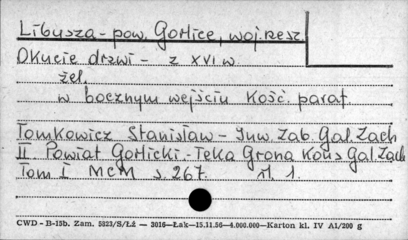 Libusza - pow. Gorlice, woj. rzesz.
Okucie drzwi - z XVI w.
żel.
w bocznym wejściu Kość. paraf.
Tomkowicz Stanisław - Inw. Zab. Gal. Zach
II. Powiat Gorlicki. - Teka Grona Kons Gal. Zach
Tom I MCM s. 267. il. 1.
CWD - B-15b. Zam. 5823/S/Łż — 3016—Łak—15.11.56—4.000.000—Karton kl. IV A1/200 g